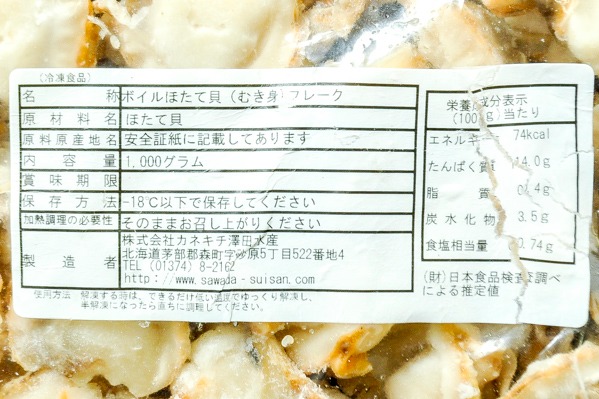 (冷凍食品)
名 称 ボイルほたて貝(むき身)フレーク
原材料名 ほたて貝
原料原産地名 安全証紙に記載してあります
内容量 1,000グラム
賞味期限
保存方法 -18℃以下で保存してください
加熱調理の必要性 そのままお召し上がりください
製造者 株式会社カネキチ澤田水産
北海道茅部郡森町字砂原5丁目522番地4
TEL (01374) 8-2162
http://www.sawada-suisan.com
使用方法 解凍する時は、できるだけ低い温度でゆっくり解凍し、
半解凍になったら直ちに調理してください。
栄養成分表示
(100g)当たり
エネルギー 74kcal
たんぱく質 14.0g
脂質 0.4g
炭水化物 3.5g
食塩相当量 0.74g
(財)日本食品検査調べ
による推定値